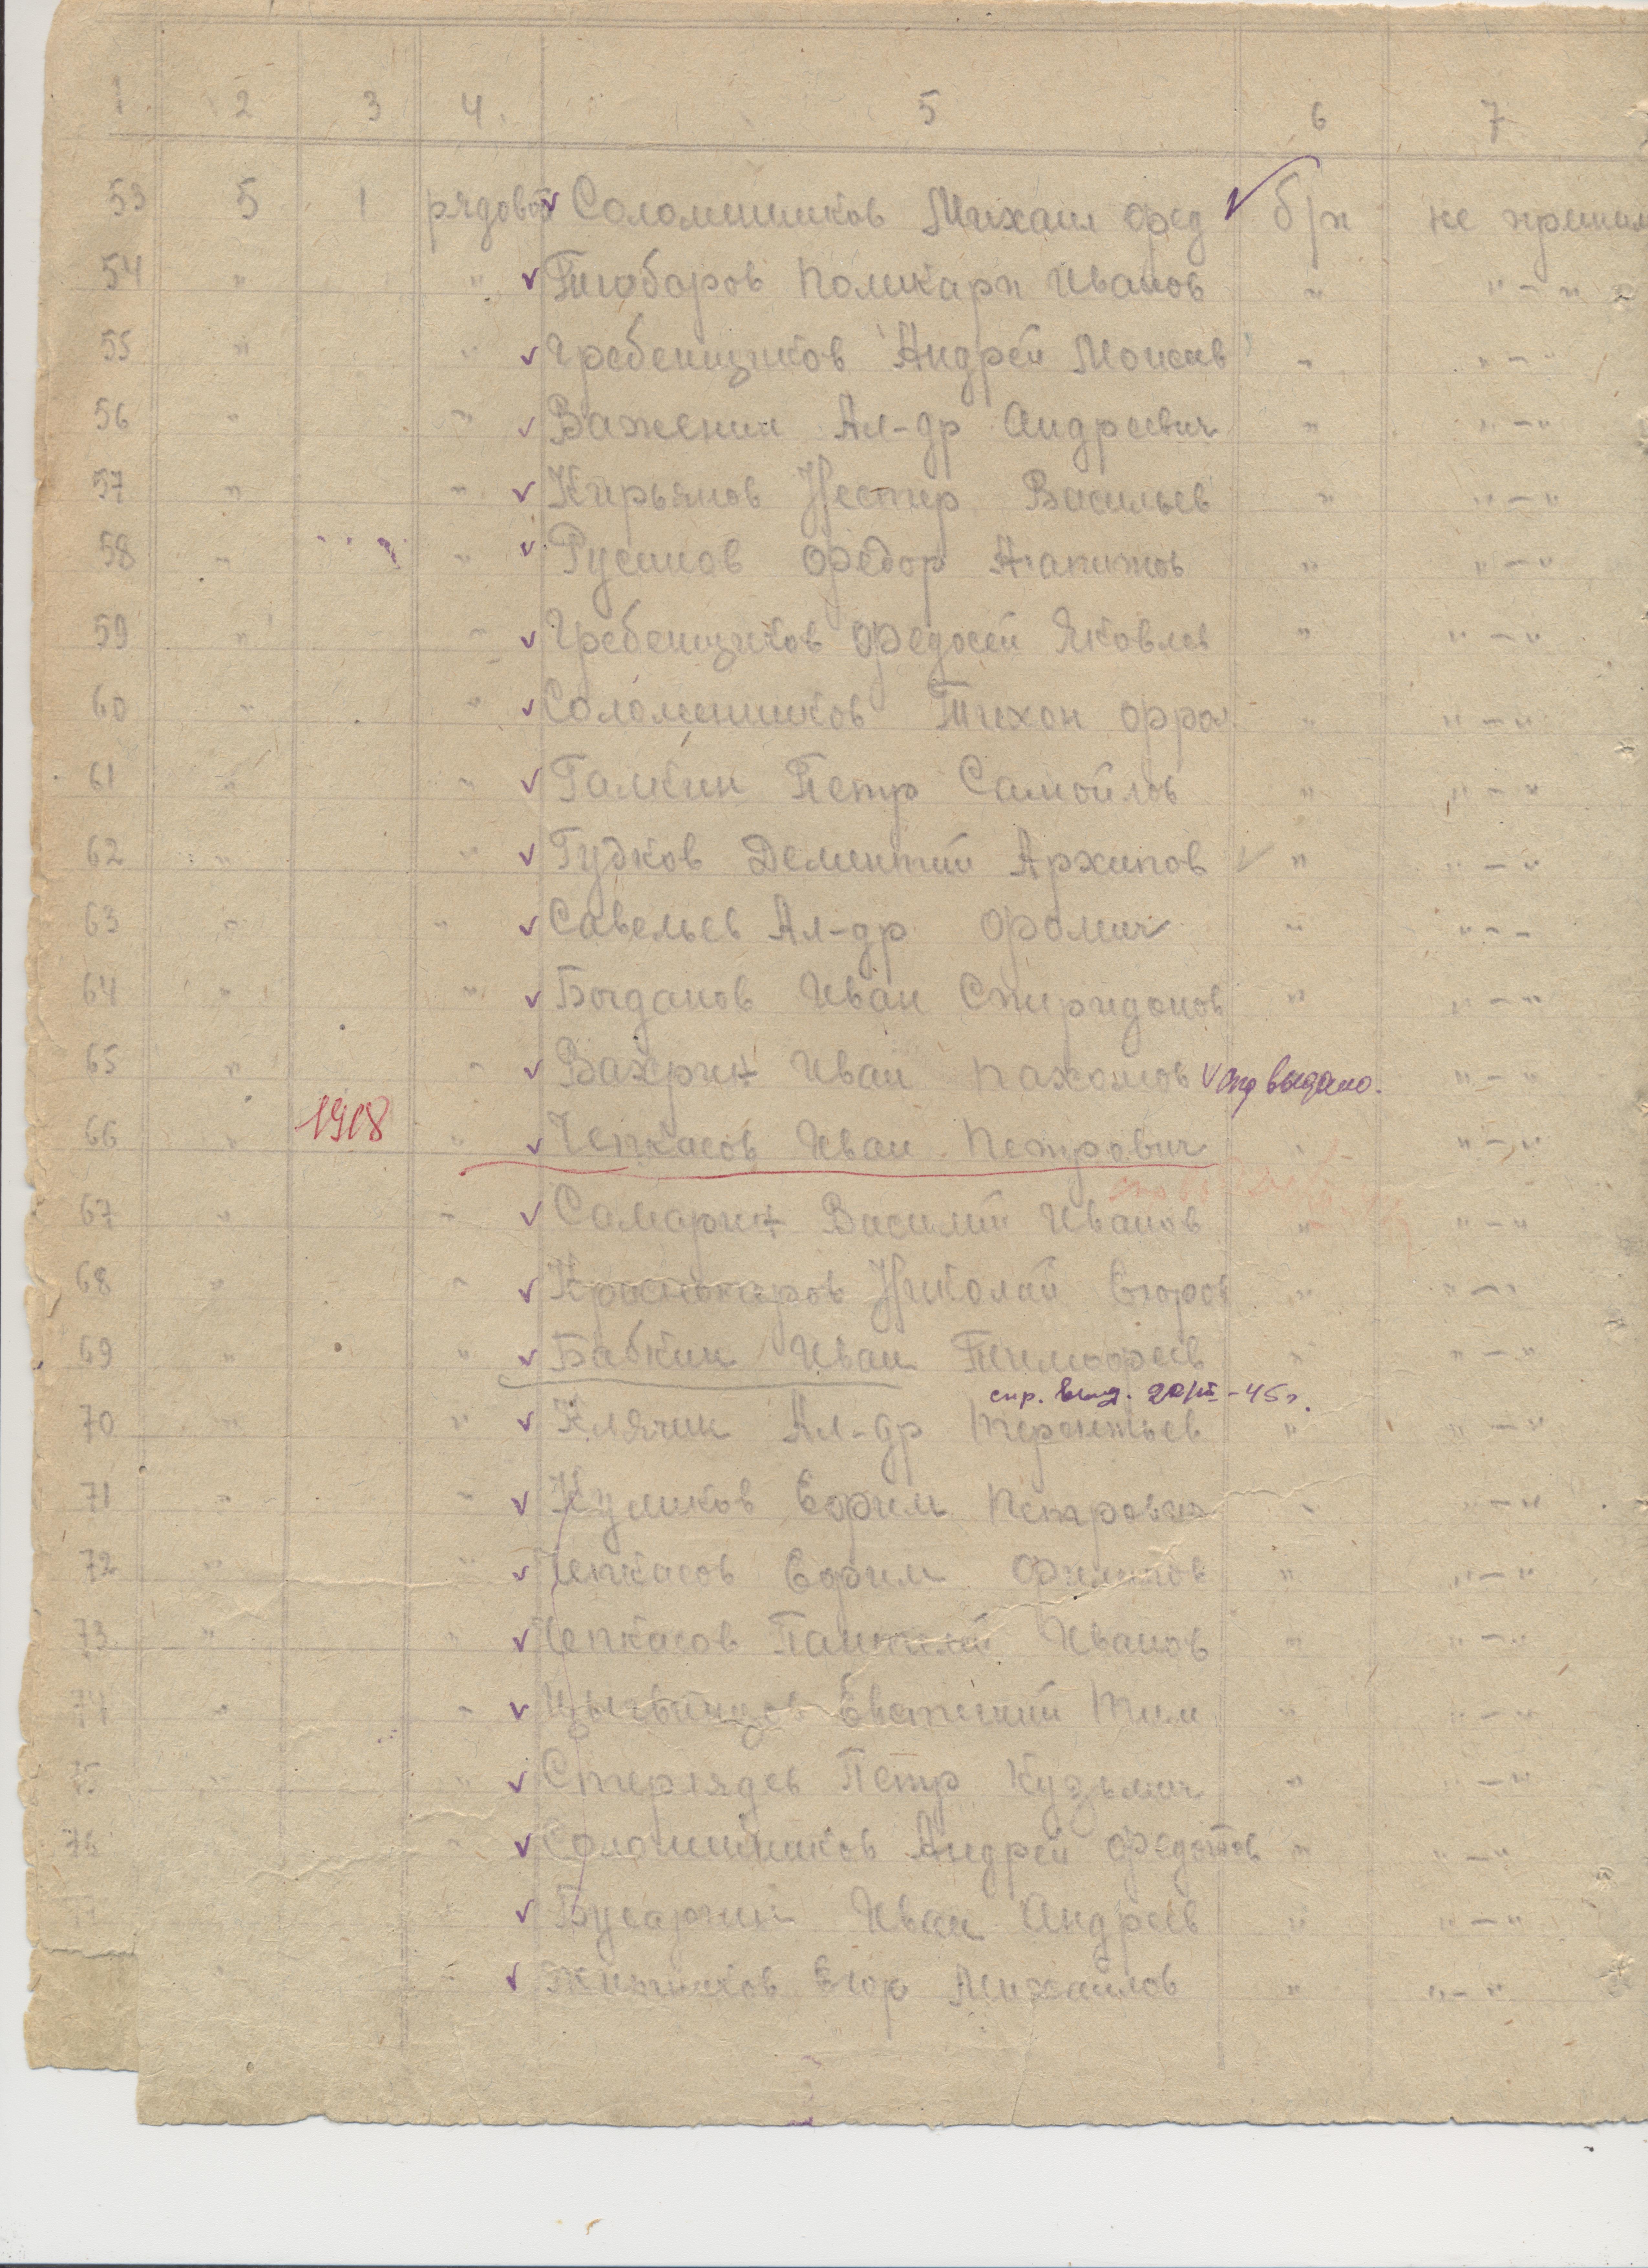 1 2 3 4 5 6 7
53 5 1 рядовой Соломенников Михаил Фед б/п не
54 " " Тюбаров Поликарп Иванов " " – "
55 " " Гребенщиков Андрей Моисеев " " – "
56 " " Важенин Ал-др Андреевич " " – "
57 " " Кирьянов Нестер Васильев " " – "
58 " " Русинов Федор Агапитов " " – "
59 " " Гребенщиков Федосей Яковлев " " – "
60 " " Соломенников Тихон Фрол " " – "
61 " " Галкин Петр Самойлов " " – "
62 " " Гудков Дементий Архипов " " – "
63 " " Савельев Ал-др Фомич " " – "
64 " " Богданов Иван Спиридонов " " – "
65 " " Иван Пахомов выдано. " – "
66 " 1918 " Чепкасов Иван Петрович " " – "
67 " " Самарин Василий Иванов " " – "
68 " " Николай Егоров " " – "
69 " " Бабкин Иван Тимофеев " " – "
спр. выд. 20/III–45г.
70 " " Клячин Ал-др Терентьев " " – "
71 " " Куликов Ефрем Петрович " " – "
72 " " Чепкасов Ефрем Филипов " " – "
73 " " Чепкасов Пантелей Иванов " " – "
74 " " Евстигний Тим " " – "
75 " " Стерлядев Петр Кузьмич " " – "
76 " Соломенников Андрей Федотов " " – "
77 " Бусаргин Иван Андреев " " – "
" Егор Михайлов " " – "